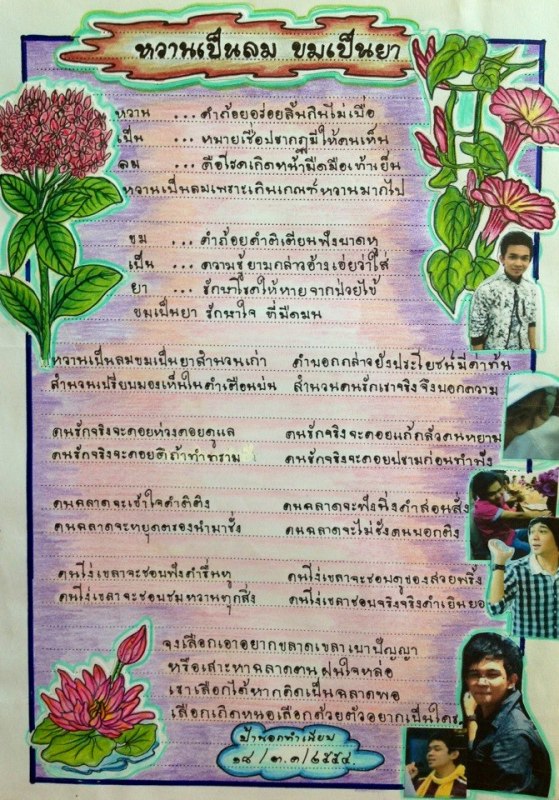 หวานเป็นลม ขมเป็นยา
หวาน ... คำถ้อยอร่อยลิ้นกินไม่เบื่อ
เป็น ... หมายเชื่อปรากฏมีให้คนเห็น
ลม ... คือโรคเกิดหน้ามืดมือเท้าเย็น
หวานเป็นลมเพราะเกินเกณฑ์หวานมากไป
ขม ... คำถ้อยคำติเตียนฟังบาดหู
เป็น ... ความรู้ยามกล่าวอ้างเอ่ยว่าใส่
ยา ... รักษาโรคให้หายจากป่วยไข้
ขมเป็นยา รักษาใจ ที่มืดมน
หวานเป็นลมขมเป็นยาสำนวนเก่า คำบอกกล่าวยังประโยชน์มีค่าท้น
สำนวนเปรียบมองเห็นในคำเตือนบ่น สำนวนคนรักเราจริงจึงบอกความ
คนรักจริงจะคอยห่วงคอยดูแล คนรักจริงจะคอยแก้กลัวคนหยาม
คนรักจริงจะคอยติถ้าทำทราม คนรักจริงจะคอยปรามก่อนทำพัง
คนฉลาดจะเข้าใจคำติติง คนฉลาดจะฟังนิ่งคำสอนสั่ง
คนฉลาดจะหยุดตรองนำมาชั่ง คนฉลาดจะไม่ชังคนบอกติง
คนโง่เขลาจะชอบฟังคำรื่นหู คนโง่เขลาจะชอบดูของสวยพริ้ง
คนโง่เขลาจะชอบชมหวานทุกสิ่ง คนโง่เขลาชอบจริงจริงคำเยินยอ
จงเลือกเอาอยากขลาดเขลาเบาปัญญา
หรือเสาะหาฉลาดตน ฝนใจหล่อ
เราเลือกได้หากคิดเป็นฉลาดพอ
เลือกเถิดหนอเลือกด้วยตัวอยากเป็นใคร
ป้านอกทำเนียบ
๑๘ / ๓.๓ / ๒๕๕๔.